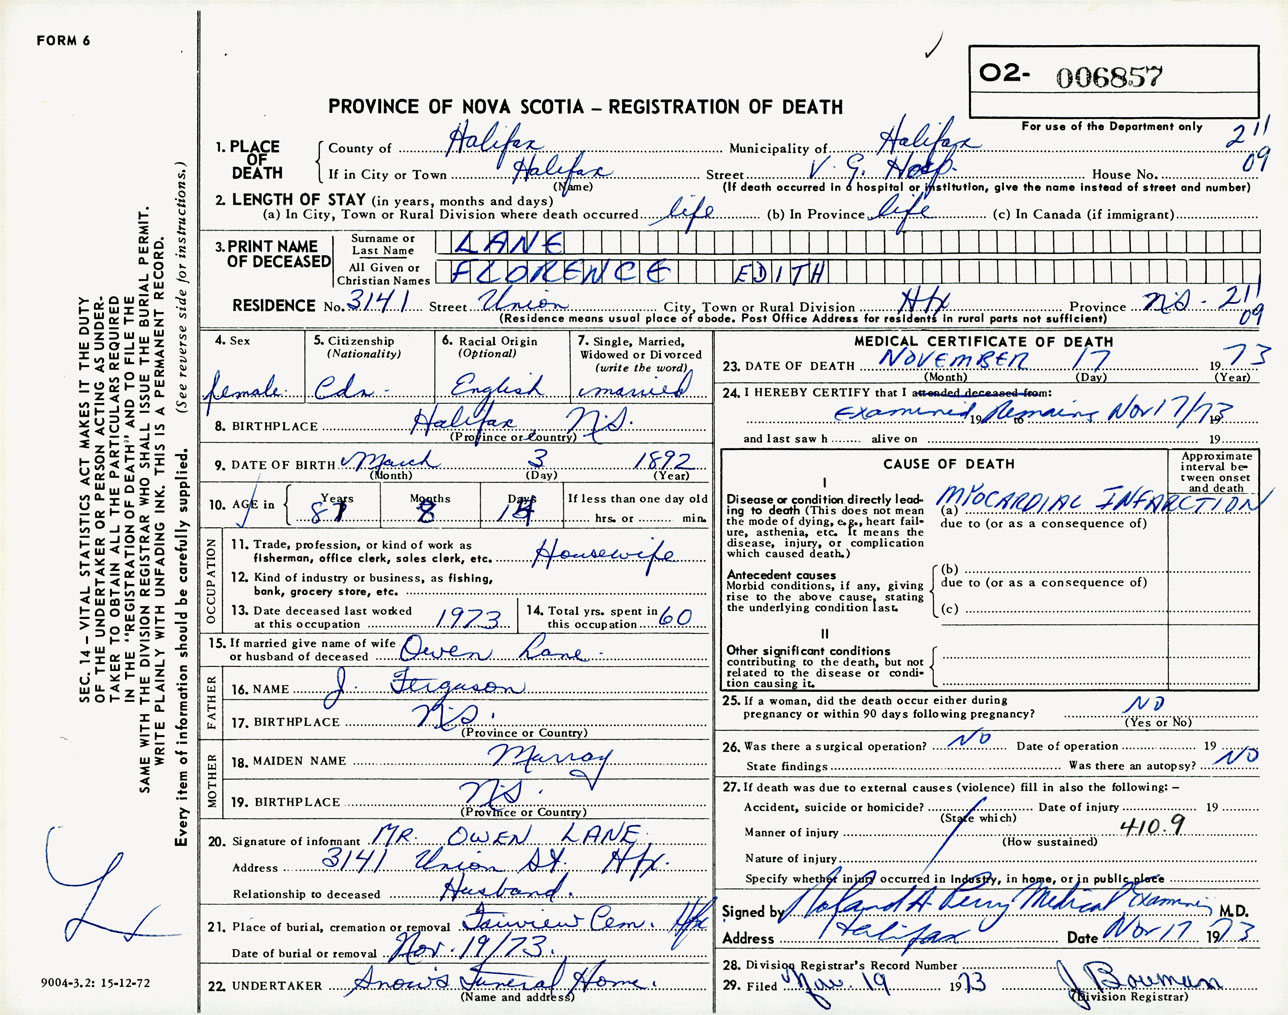 FORM 6
O2- 006857
PROVINCE OF NOVA SCOTIA – REGISTRATION OF DEATH
For use of the Department only
211
09
1. PLACE OF DEATH
County of Halifax Municipality of Halifax
If in City or Town Halifax Street V. G. Hosp. House No.
(Name) (If death occurred in a hospital or institution, give the name instead of street and number)
2. LENGTH OF STAY (in years, months and days)
(a) In City, Town or Rural Division where death occurred life (b) In Province life (c) In Canada (if immigrant)
3. PRINT NAME OF DECEASED
Surname or Last Name LANE
All Given or Christian Names FLORENCE EDITH
RESIDENCE No. 3141 Street Union City, Town or Rural Division Hfx Province N.S. 211
09
(Residence means usual place of abode. Post Office Address for residents in rural parts not sufficient)
4. Sex
female
5. Citizenship
(Nationality)
Cdn.
6. Racial Origin
(Optional)
English
7. Single, Married,
Widowed or Divorced
(write the word)
married
8. BIRTHPLACE Halifax N.S.
(Province or Country)
9. DATE OF BIRTH March 3 1892
(Month) (Day) (Year)
10. AGE in
Years Months Days
81 8 14
If less than one day old
hrs. or min.
OCCUPATION
11. Trade, profession, or kind of work as
fisherman, office clerk, sales clerk, etc. Housewife
12. Kind of industry or business, as fishing,
bank, grocery store, etc.
13. Date deceased last worked
at this occupation 1973
14. Total yrs. spent in
this occupation 60
15. If married give name of wife
or husband of deceased Owen Lane
FATHER
16. NAME J. Ferguson
17. BIRTHPLACE N.S.
(Province or Country)
MOTHER
18. MAIDEN NAME Murray
19. BIRTHPLACE N.S.
(Province or Country)
20. Signature of informant MR. OWEN LANE
Address 3141 Union St. Hfx.
Relationship to deceased Husband.
21. Place of burial, cremation or removal Fairview Cem. Hfx
Date of burial or removal Nov. 19/73.
22. UNDERTAKER Snow's Funeral Home.
(Name and address)
MEDICAL CERTIFICATE OF DEATH
23. DATE OF DEATH NOVEMBER 17 1973
(Month) (Day) (Year)
24. I HEREBY CERTIFY that I attended deceased from:
Examined Remains Nov 17/73
19 to 19
and last saw h alive on 19
CAUSE OF DEATH
Approximate
interval be-
tween onset
and death
I
Disease or condition directly lead-
ing to death (This does not mean
the mode of dying, e.g., heart fail-
ure, asthenia, etc. It means the
disease, injury, or complication
which caused death.)
(a) MYOCARDIAL INFARCTION
due to (or as a consequence of)
Antecedent causes
Morbid conditions, if any, giving
rise to the above cause, stating
the underlying condition last.
(b)
due to (or as a consequence of)
(c)
II
Other significant conditions
contributing to the death, but not
related to the disease or condi-
tion causing it.
25. If a woman, did the death occur either during
pregnancy or within 90 days following pregnancy? NO
(Yes or No)
26. Was there a surgical operation? NO Date of operation 19
State findings Was there an autopsy? NO
27. If death was due to external causes (violence) fill in also the following: –
Accident, suicide or homicide? Date of injury 19
(State which)
Manner of injury 410.9
(How sustained)
Nature of injury
Specify whether injury occurred in Industry, in home, or in public place
Signed by Roland H Perry Medical Examiner M.D.
Address Halifax Date Nov 17 1973
28. Division Registrar's Record Number
29. Filed Nov. 19 1973 J Bowman
(Division Registrar)
SEC. 14 – VITAL STATISTICS ACT MAKES IT THE DUTY
OF THE UNDERTAKER OR PERSON ACTING AS UNDER-
TAKER TO OBTAIN ALL THE PARTICULARS REQUIRED
IN THE "REGISTRATION OF DEATH" AND TO FILE THE
SAME WITH THE DIVISION REGISTRAR WHO SHALL ISSUE THE BURIAL PERMIT.
WRITE PLAINLY WITH UNFADING INK. THIS IS A PERMANENT RECORD.
Every item of information should be carefully supplied. (See reverse side for instructions.)
9004-3.2: 15-12-72